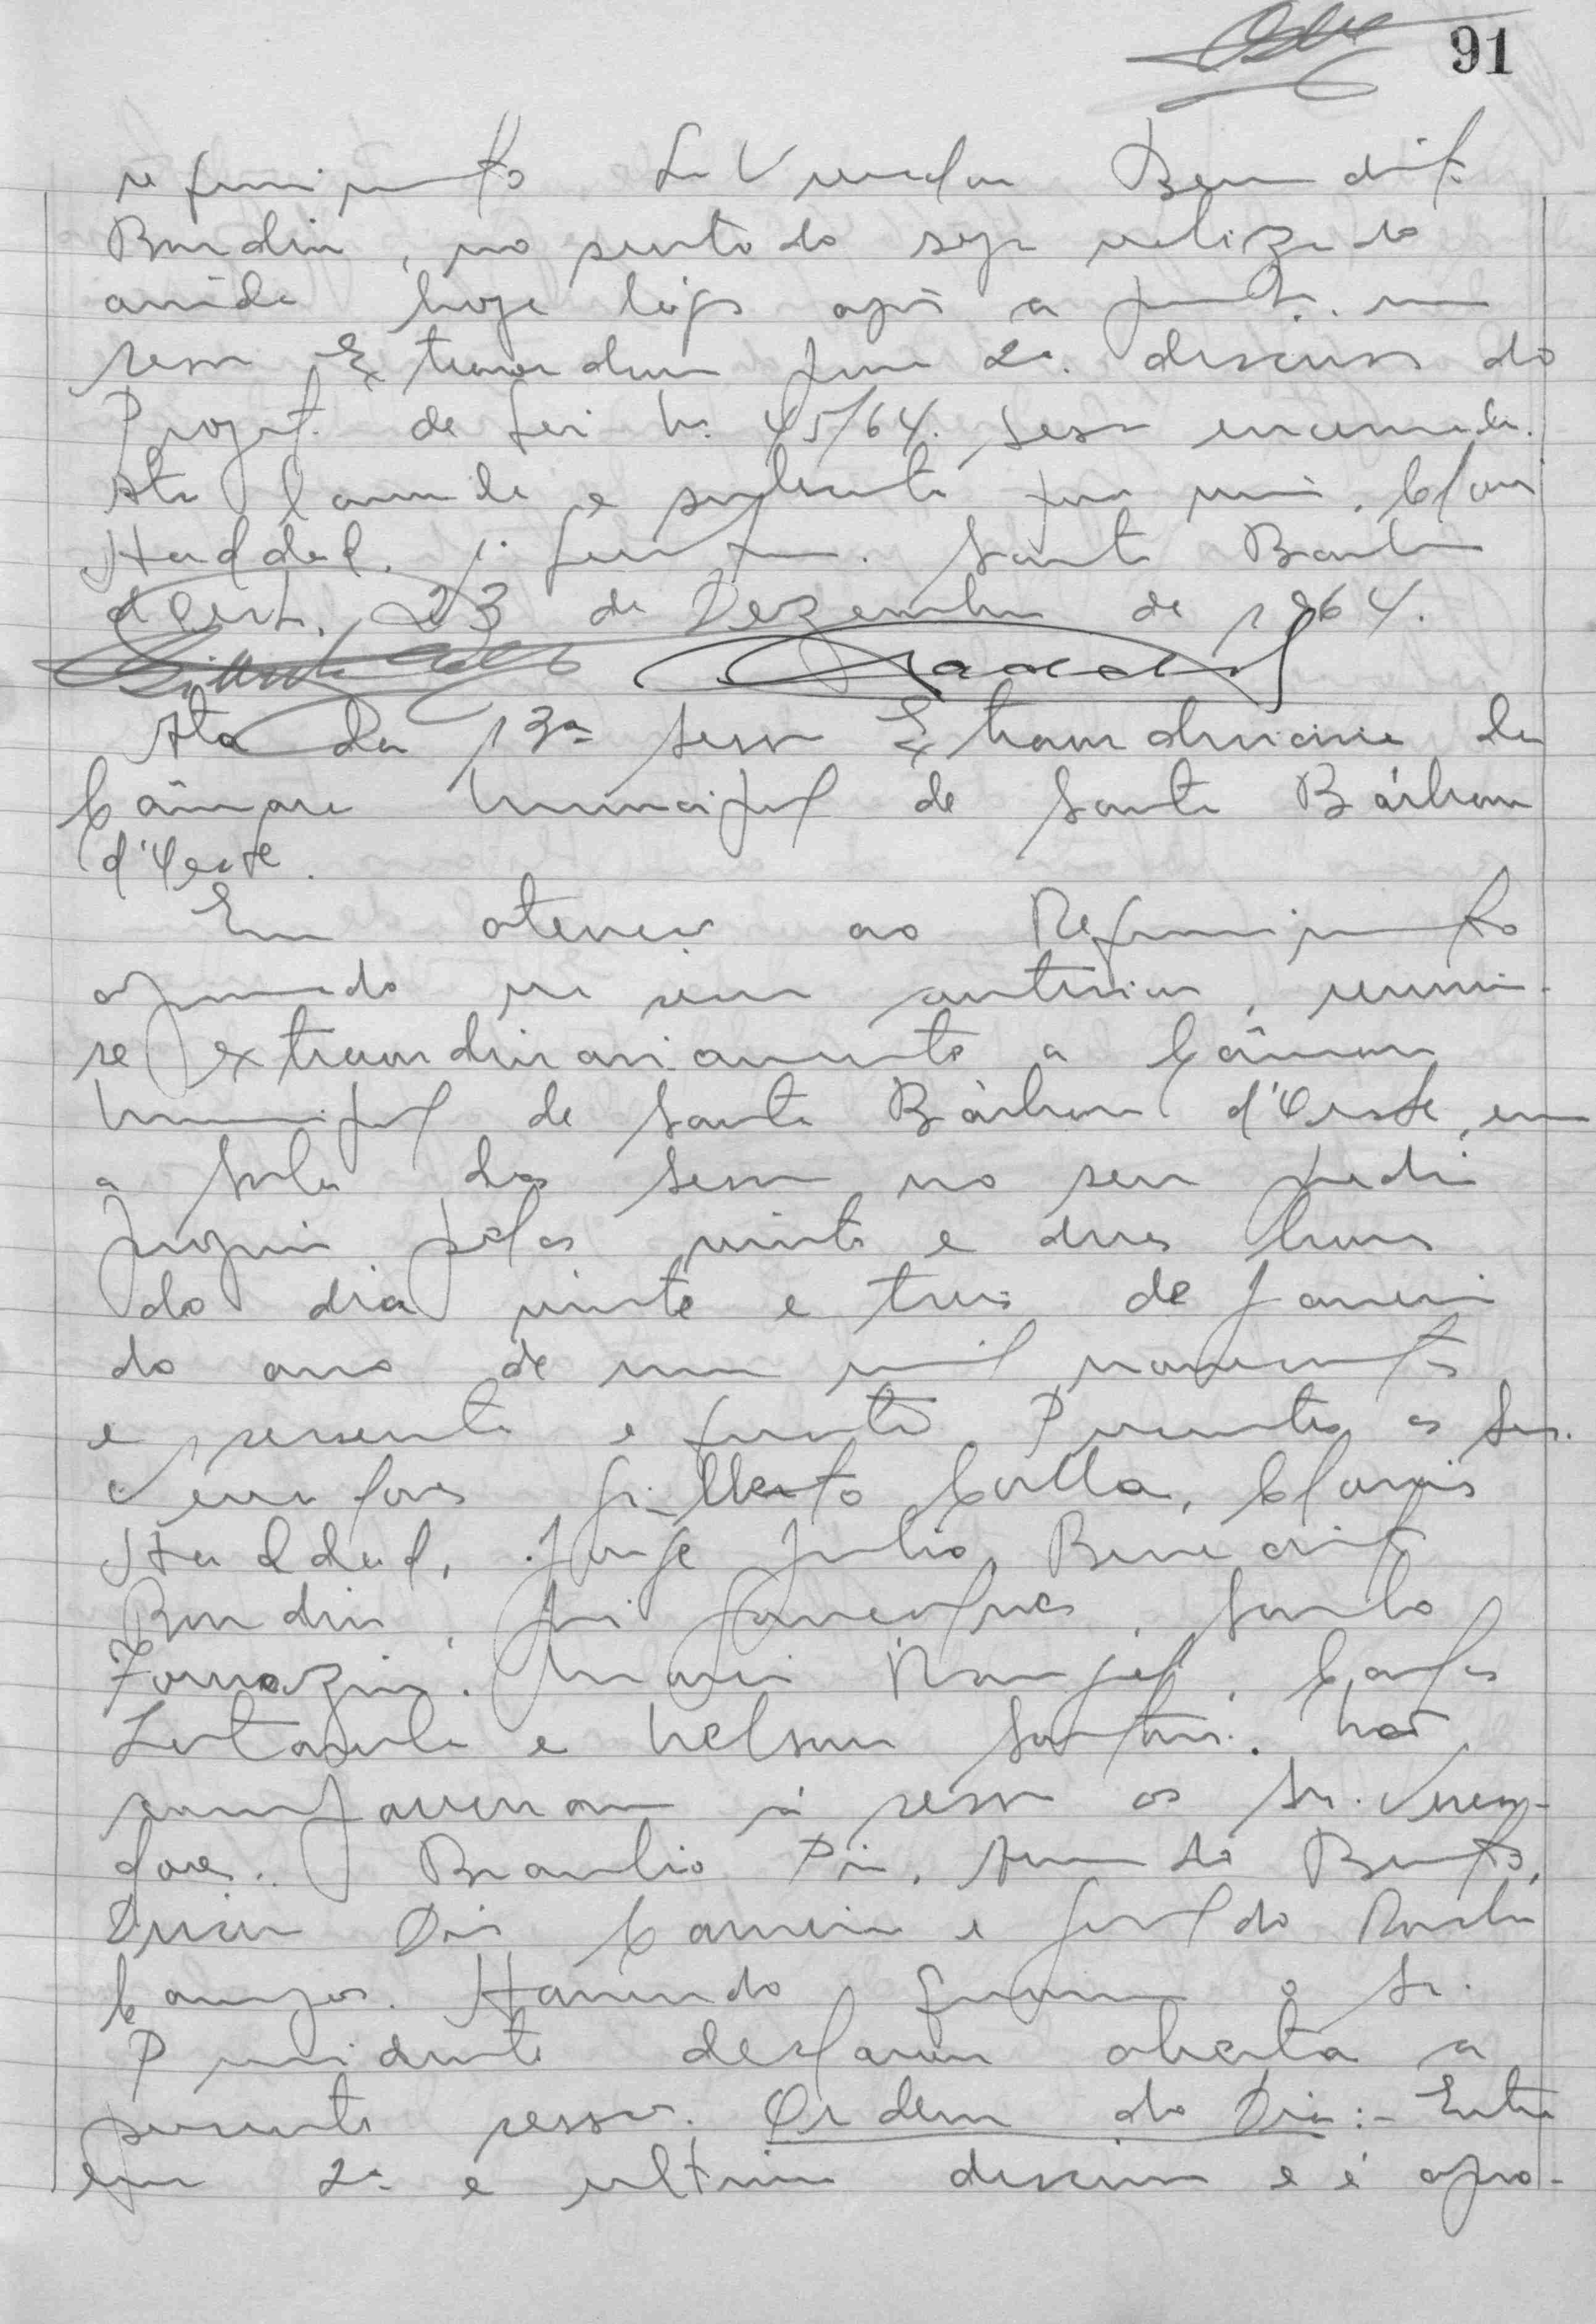 91
requerimento do Vereador Benedito
Bondin, no sentido seja realizado
ainda hoje lógo após a presente, uma
sessão Extraordinaria para 2ª. discussão do
Projeto de Lei nº. 45/64. Sessão encerrada.
Ata lavrada e subscrita por mim, Clovis
Haddad, 1º Secretario. Santa Barbara
d'Oeste, 23 de Dezembro de 1964.
Haddad
Ata da 13ª sessão Extraordinaria da
Câmara Municipal de Santa Bárbara
d'Oeste.
Em atenção ao Requerimento
aprovado na sessão anterior, reuniu-
se extraordinariamente a Câmara
Municipal de Santa Bárbara d'Oeste, em
a sala das sessões no seu predio
proprio pelas vinte e duas horas
do dia vinte e tres de Janeiro
do ano de um mil novecentos
e sessenta e quatro. Presentes os Srs.
Vereadores Gilberto Colla, Clovis
Haddad, Jorge Julio, Benedito
Bondin, Santo
Fornazin, Mario Rangel, Carlos
e Nelson. Não
compareceram á sessão os Srs. Verea-
dores: Braulio Pio, Armando Bento,
Dirceu Dias Carneiro e Geraldo Rocha
Campos. Havendo quorum o Sr.
Presidente declarou aberta a
presente sessão. Ordem do Dia:- Entra
em 2ª e ultima discussão e é apro-